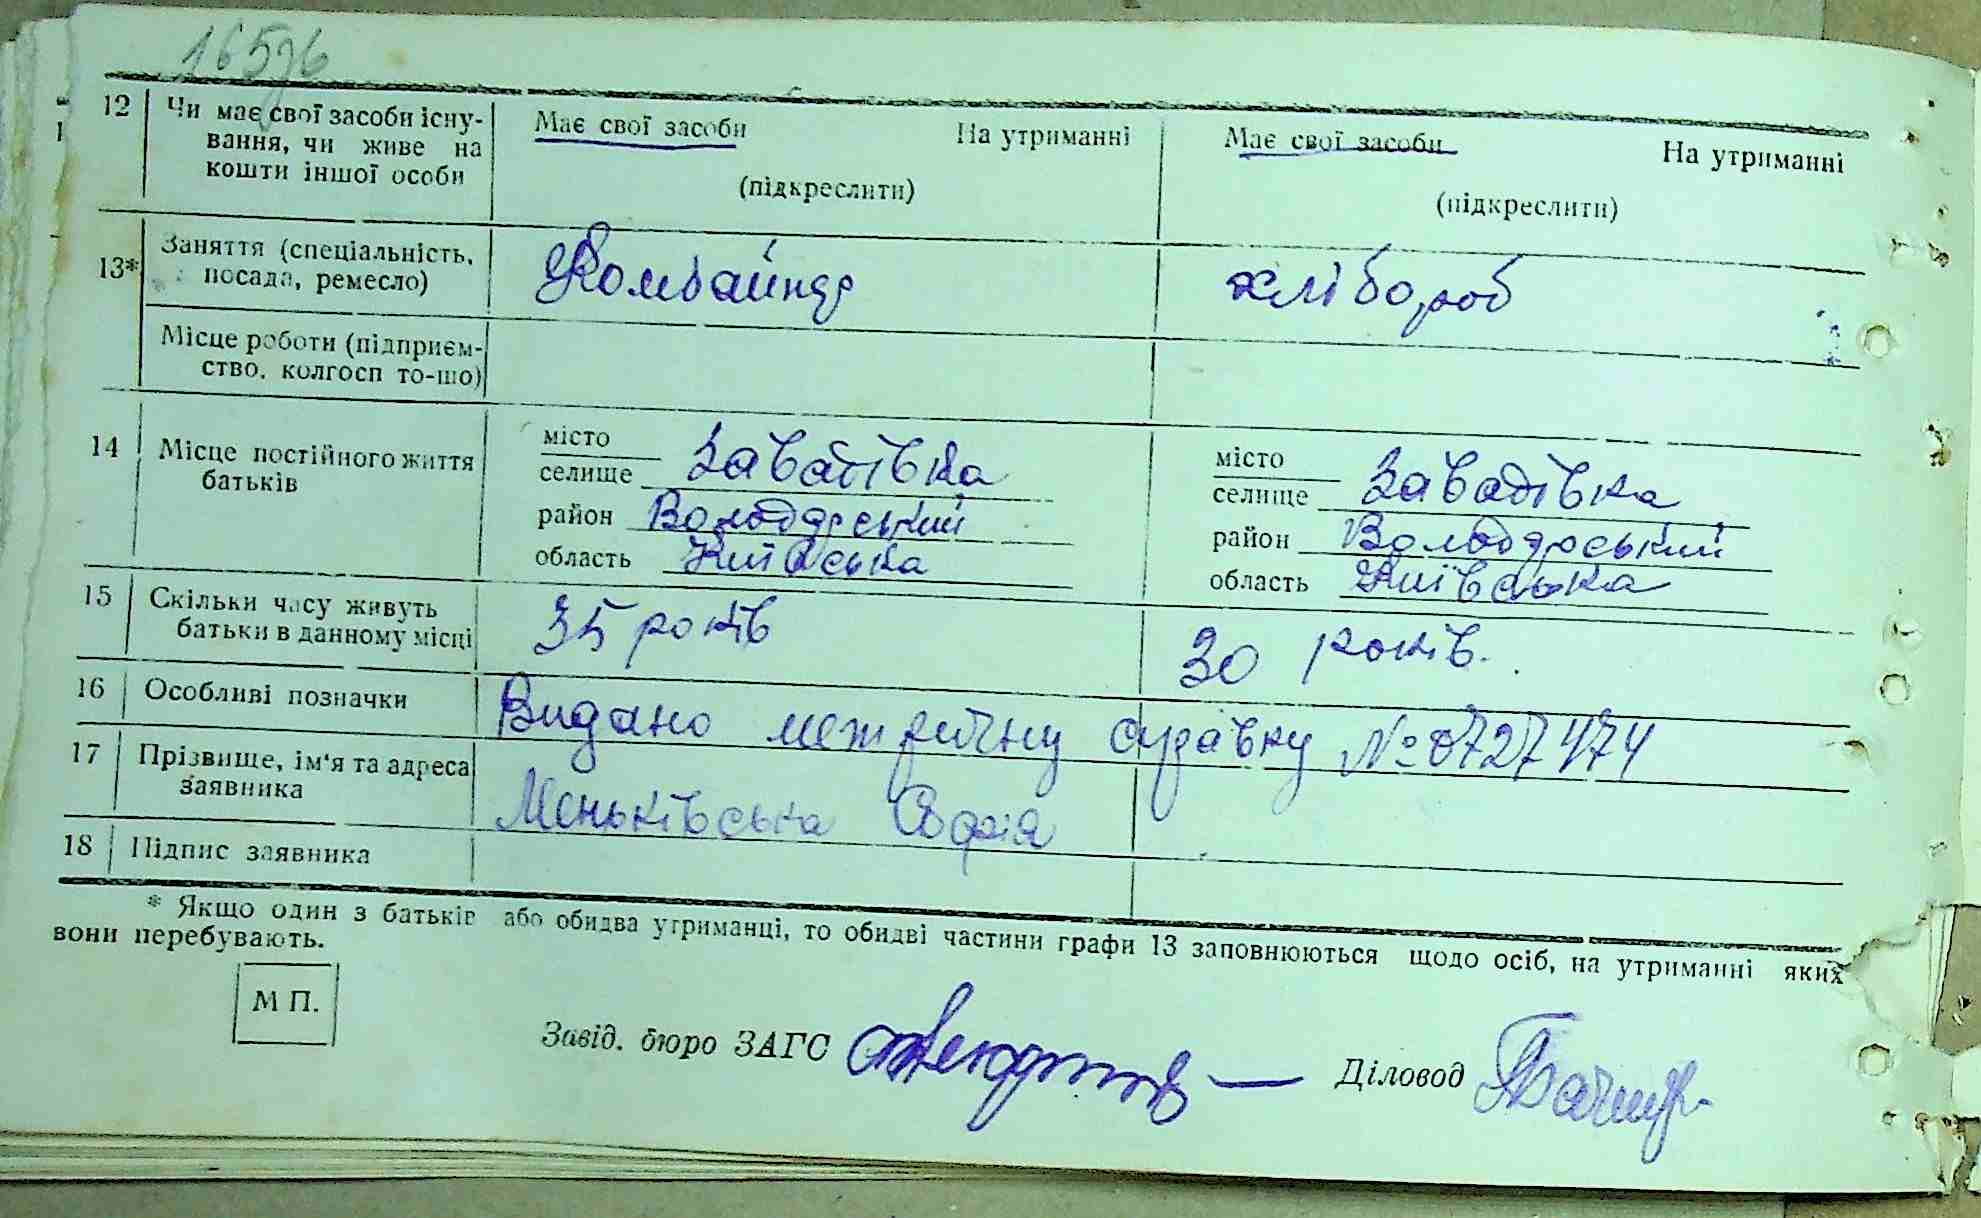 16576
12 Чи має свої засоби існу- Має свої засоби На утриманні Має свої засоби На утриманні
вання, чи живе на
кошти іншої особи (підкреслити) (підкреслити)
13* Заняття (спеціальність, Комбайнер хлібороб
посада, ремесло)
Місце роботи (підприєм-
ство, колгосп то-що)
14 Місце постійного життя місто місто
батьків селище Завадівка селище Завадівка
район Володарський район Володарський
область Київська область Київська
15 Скільки часу живуть 35 років 30 років.
батьки в данному місці
16 Особливі позначки Видано метричну справку № 0727474
17 Прізвище, ім'я та адреса Меньківська Софія
заявника
18 Підпис заявника
* Якщо один з батьків або обидва утриманці, то обидві частини графи 13 заповнюються щодо осіб, на утриманні яких
вони перебувають.
М П.
Завід. бюро ЗАГС Діловод